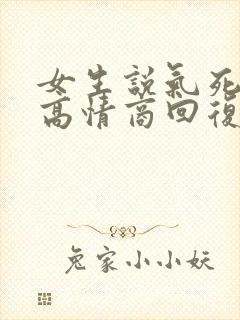 女生説氣死
高情商回復
兔家小小妖